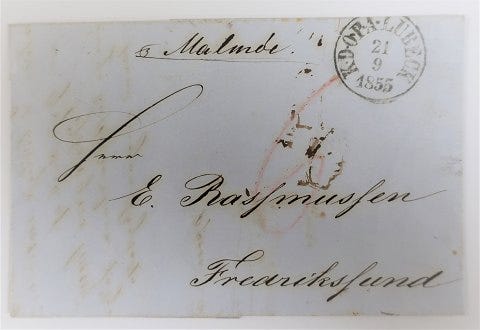 Malmöe.
K.D.O.P.A. LÜBECK
21
9
1855
Herrn
E. Rasſmusſen
Fredriksſund